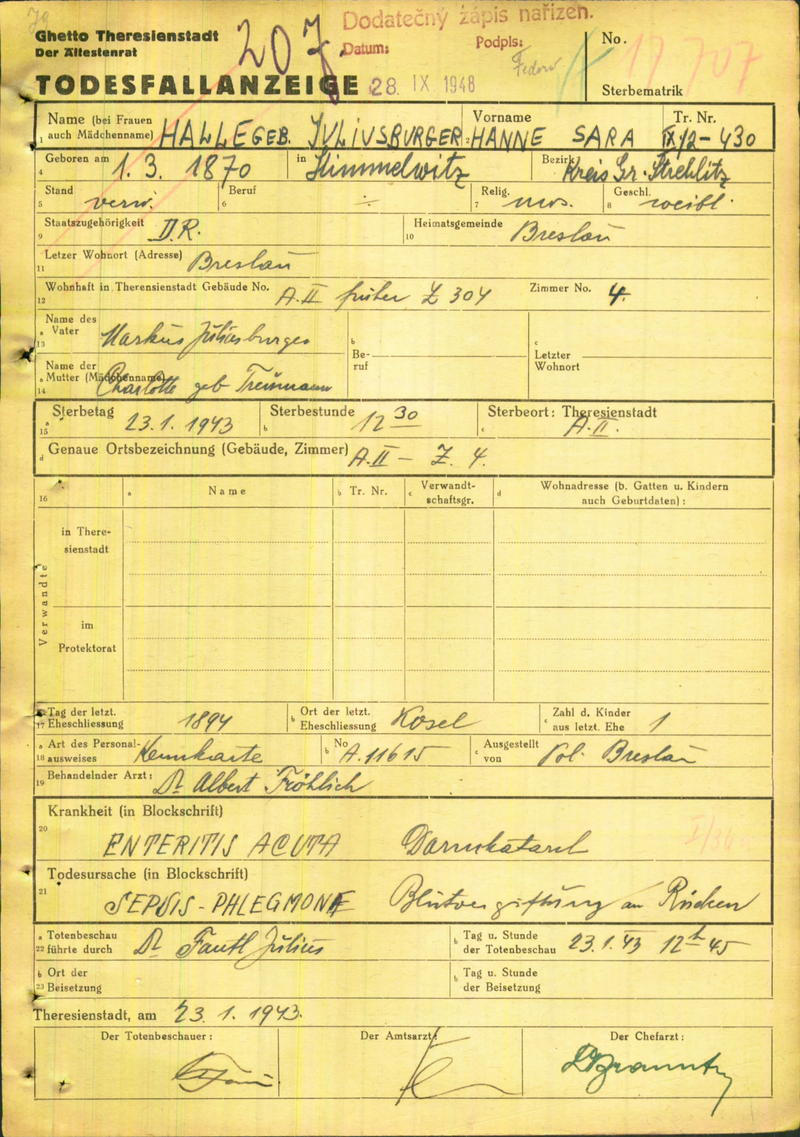 Ghetto Theresienstadt
Der Ältestenrat
207
Dodatečný zápis nařízen.
Datum:
Podpis:
28. IX 1948
No. 17707
TODESFALLANZEIGE
Sterbematrik
1 Name (bei Frauen auch Mädchenname) HALLE GEB. JULIUSBURGER Vorname HANNE SARA Tr. Nr. IX/2-430
4 Geboren am 1. 3. 1870 in Himmelwitz Bezirk Kreis Gr. Strehlitz
5 Stand verw. 6 Beruf ÷ 7 Relig. mos. 8 Geschl. weibl.
9 Staatszugehörigkeit D.R. 10 Heimatsgemeinde Breslau
11 Letzer Wohnort (Adresse) Breslau
12 Wohnhaft in Theresienstadt Gebäude No. A.II früher L 304 Zimmer No. 4.
13 a Name des Vater Markus Juliusburger b Beruf c Letzter Wohnort
14 a Name der Mutter (Mädchenname) Charlotte geb
15 a Sterbetag 23.1.1943 b Sterbestunde 12 30 c Sterbeort: Theresienstadt A.II.
d Genaue Ortsbezeichnung (Gebäude, Zimmer) A.II – Z. 4.
16 a Name b Tr. Nr. c Verwandtschaftsgr. d Wohnadresse (b. Gatten u. Kindern auch Geburtdaten):
Verwandte
in Theresienstadt
im Protektorat
17 a Tag der letzt. Eheschliessung 1894 b Ort der letzt. Eheschliessung Kosel c Zahl d. Kinder aus letzt. Ehe 1
18 a Art des Personalausweises Kennkarte b No A.11615 c Ausgestellt von Pol. Breslau
19 Behandelnder Arzt: Dr Albert Fröhlich
20 Krankheit (in Blockschrift)
ENTERITIS ACUTA Darmkatarrh
21 Todesursache (in Blockschrift)
SEPSIS - PHLEGMONE Blutvergiftung am Rücken
22 a Totenbeschau führte durch Dr Fantl Julius b Tag u. Stunde der Totenbeschau 23.1.43 12h 45
23 b Ort der Beisetzung b Tag u. Stunde der Beisetzung
Theresienstadt, am 23. 1. 1943.
Der Totenbeschauer: Der Amtsarzt: Der Chefarzt: